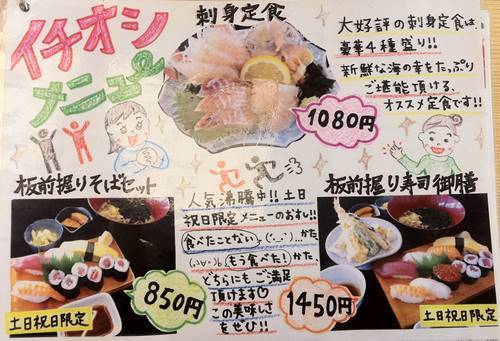 イチオシ
メニュー
刺身定食
大好評の刺身定食は、
豪華4種盛り!!
新鮮な海の幸をたっぷり
ご堪能頂ける、
オススメ定食です!!
1080円
板前握りそばセット
850円
土日祝日限定
人気沸騰中!!土日
祝日限定メニューのおすし!!
食べたことない かた
もう食べた! かた、
どちらにもご満足
頂けます♡
この美味しさ
をぜひ!!
板前握り寿司御膳
1450円
土日祝日限定